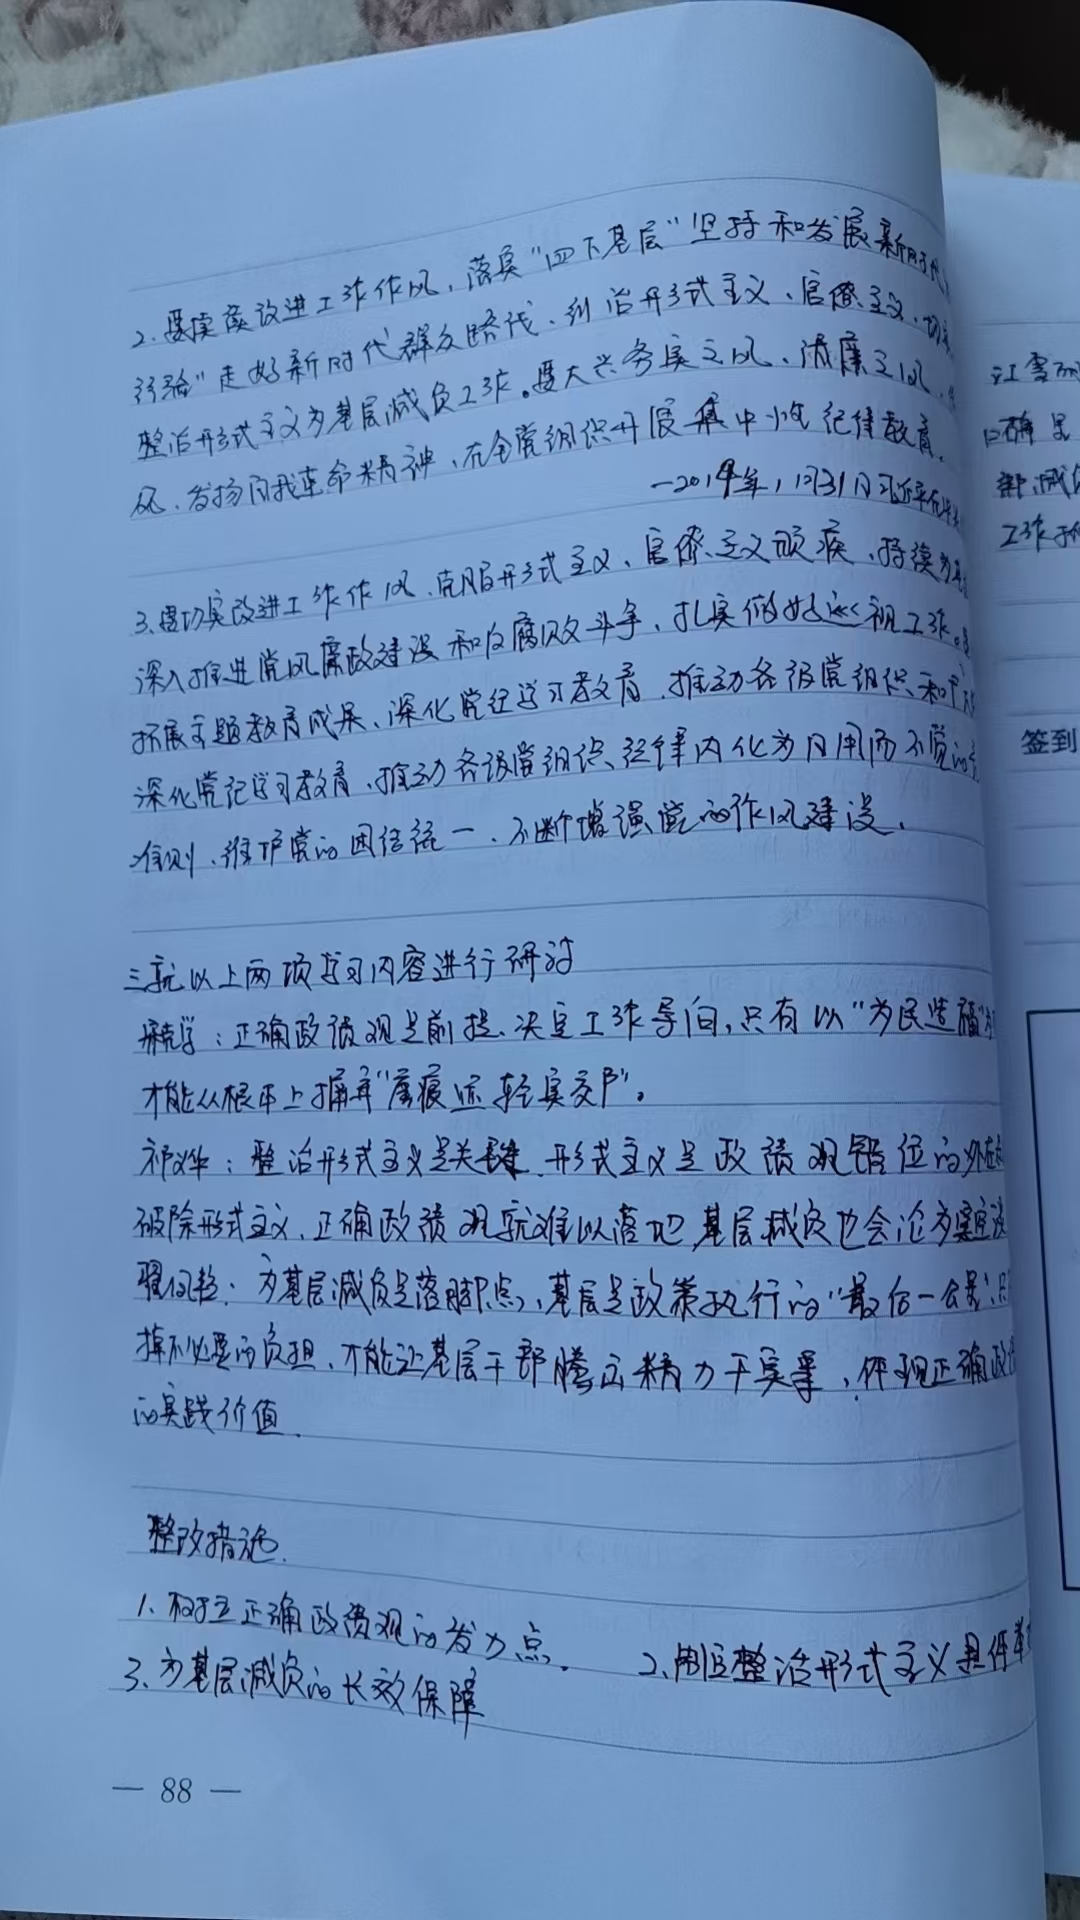 2.要持续改进工作作风,落实"四下基层"坚持和发展新时代
经验"走好新时代群众路线、纠治形式主义、官僚主义、切实
整治形式主义为基层减负工作。要大兴务实之风、清廉之风、
风、发扬自我革命精神、在全党组织开展集中性纪律教育。
一2019年,10月31日习近平在
3.要切实改进工作作风、克服形式主义、官僚主义顽疾、持续为
深入推进党风廉政建设和反腐败斗争、扎实做好巡视工作。
拓展主题教育成果、深化党纪学习教育、推动各级党组织和
深化党纪学习教育、推动各级党组织、纪律内化为日用而不觉的
准则、维护党的团结统一、不断增强党的作风建设、
三就以上两项学习内容进行研讨
:正确政绩观是前提、决定工作导向,只有以"为民造福"
才能从根本上摒弃"重痕迹轻实交"。
祁:整治形式主义是关键、形式主义是政绩观错位的外在
破除形式主义、正确政绩观就难以落地 基层减负也会沦为
:为基层减负是落脚点、基层是政策执行的"最后一公里"
掉不必要的负担、才能让基层干部腾出精力干实事、体现正确政
的实践价值.
整改措施.
1、树立正确政绩观的发力点. 2、制定整治形式主义具体举
3、为基层减负的长效保障
— 88 —
江雪
口确是
部.减
工作
签到